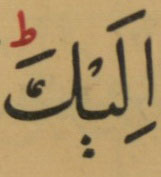 اِلَيْكَ ؕ